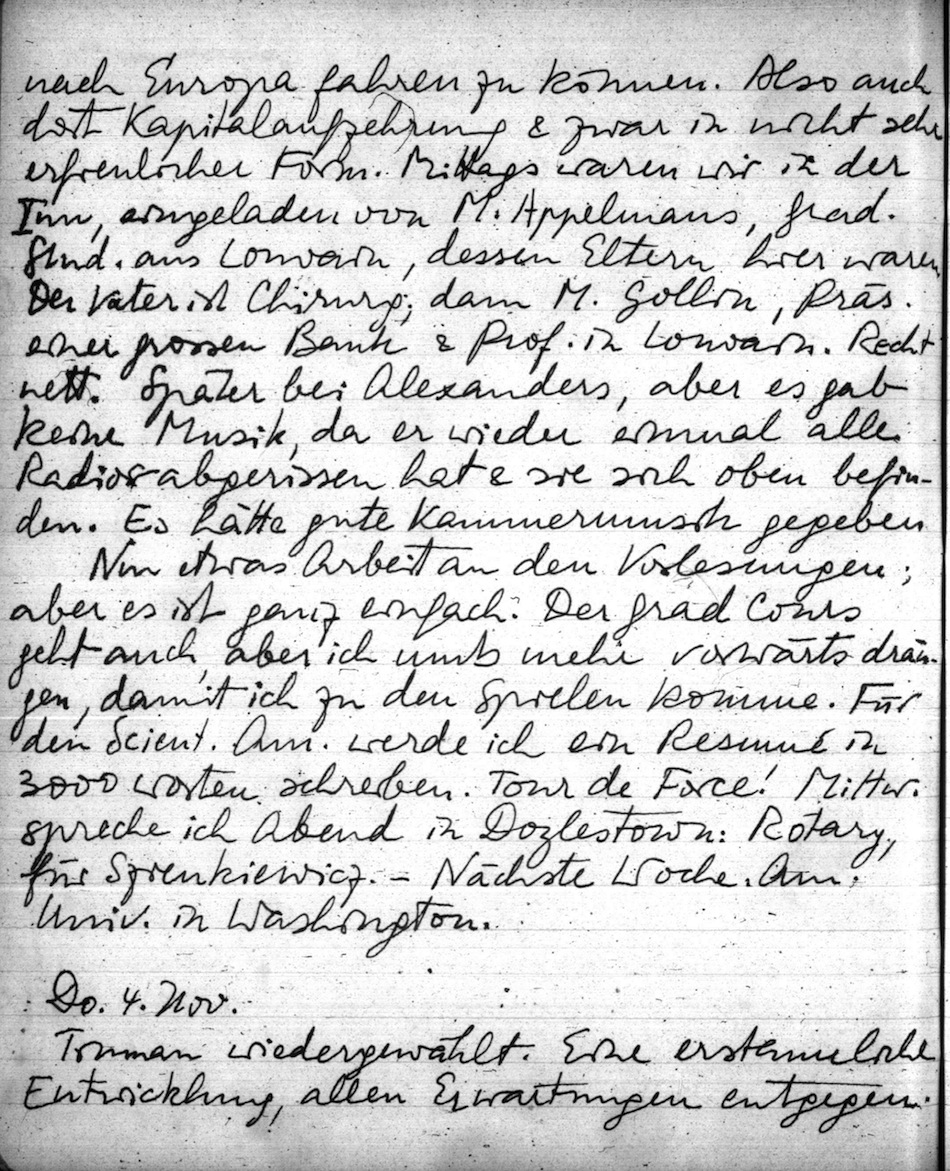 nach Europa fahren zu können. Also auch
dort Kapitalaufzehrung & zwar in nicht sehr
erfreulicher Form. Mittags waren wir in der
Inn, eingeladen von M. Appelmans, grad.
Stud. aus Louvain, dessen Eltern hier waren
Der Vater ist Chirurg; dann M. Gollin, Präs.
einer grossen Bank & Prof. in Louvain. Recht
nett. Später bei Alexanders, aber es gab
keine Musik, da er wieder einmal alle
Radios abgerissen hat & sie sich oben befin-
den. Es hätte gute Kammermusik gegeben
Nun etwas Arbeit an den Vorlesungen;
aber es ist ganz einfach. Der grad Cours
geht auch, aber ich muss mehr vorwärts drän-
gen, damit ich zu den Spielen komme. Für
den Scient. Am. werde ich ein Resumé in
3000 Worten schreiben. Tour de Force! Mittw.
spreche ich Abend in Doylestown: Rotary,
für Szienkiewicz. – Nächste Woche. Am.
Univ. in Washington.
Do. 4. Nov.
Truman wiedergewählt. Eine erstaunliche
Entwicklung, allen Erwartungen entgegen.